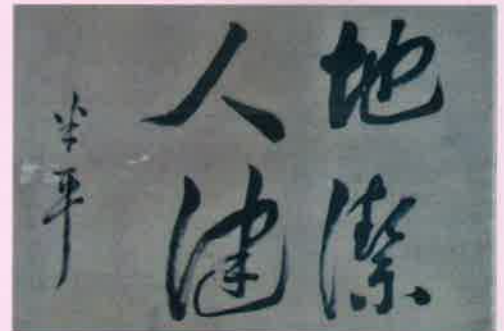 地潔
人健
半平